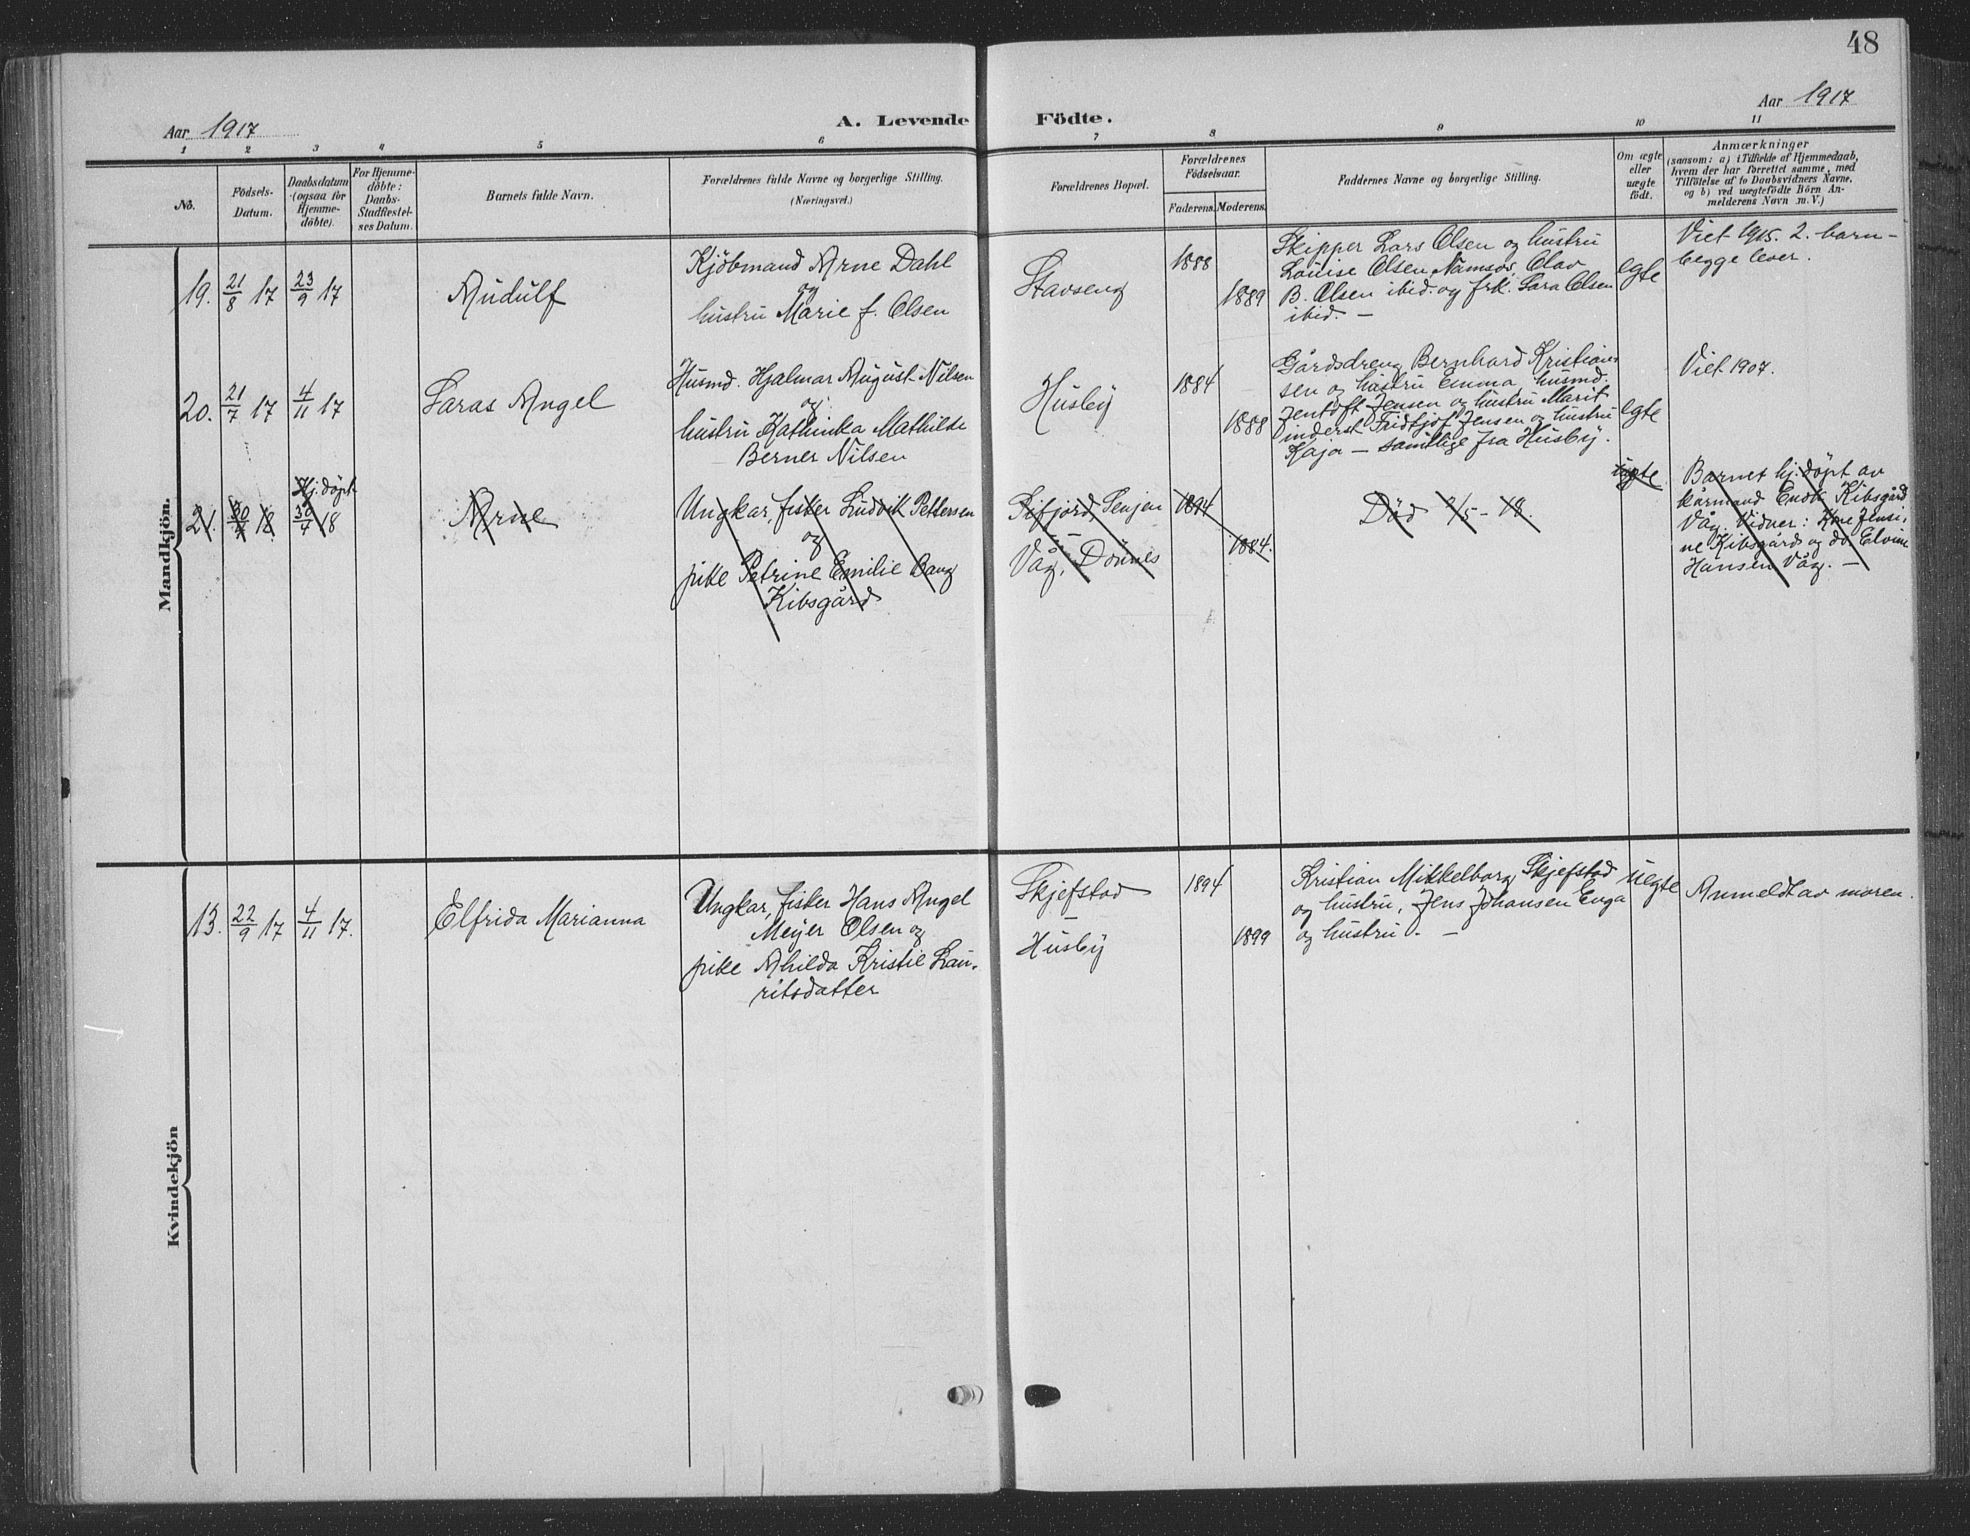 48
Aar 1917
A. Levende Födte.
Aar 1917
1 2 3 4 5 6 7 8 9 10 11
No.
Födsels-
Datum.
Daabsdatum
(ogsaa for
Hjemme-
döbte).
For Hjemme-
döbte:
Daabs-
Stadfæstel-
ses Datum.
Barnets fulde Navn.
Forældrenes fulde Navne og borgerlige Stilling.
(Næringsvei.)
Forældrenes Bopæl.
Forældrenes
Födselsaar.
Faderens. Moderens.
Faddernes Navne og borgerlige Stilling.
Om ægte
eller
uægte
født.
Anmærkninger
(saasom: a) i Tilfælde af Hjemmedaab,
hvem der har forrettet samme, med
Tilföielse af to Daabsvidners Navne,
og b) ved uægtefödte Börn An-
melderens Navn m. V.)
Mandkjön.
19. 21/8 17 23/9 17
Audulf
Kjöbmand Arne Dahl
og
hustru Marie f. Olsen
Stavseng
1888
1889
Skipper Lars Olsen og hustru
Louise Olsen, Namsos, Olav
B. Olsen ibid. og frk. Sara Olsen
ibid. —
egte
Viet 1915. 2. barn –
begge lever.
20. 21/7 17 4/11 17
Laras Angel
Husmd. Hjalmar August Nilsen
og
hustru Kathinka Mathilde
Berner Nilsen
Husby
1884
1888
Gårdsdreng Bernhard Kristian-
sen og hustru Emma, husmd.
Jentoft Jensen og hustru Marit
inderst Fridtjof Jensen og hustru
Kaja — samtlige fra Husby.
egte
Viet 1907.
21. 30/7 18. Hj. döpt 30/7 18
Arne
Ungkar, fisker Ludvik Pettersen
og
pike Petrine Emilie Bang
Kibsgård
Sifjord, Senjen
—
Våg, Dönnes
1894
1884.
Död 2/5 – 18.
uegte
Barnet hj. döpt av
kårmand Enok Kibsgård
Våg. Vidner: Kone Jensi-
ne Kibsgård og do Elvine
Hansen Våg. —
Kvindekjön
13. 22/9 17 4/11 17.
Elfrida Marianna
Ungkar, fisker Hans Angel
Meyer Olsen og
pike Alhilda Kristie Lau-
ritsdatter
Skjefstad
—
Husby
1894
1899
Kristian Mikkelborg Skjefstad
og hustru, Jens Johansen Enga
og hustru. —
uegte
Anmeldt av moren.